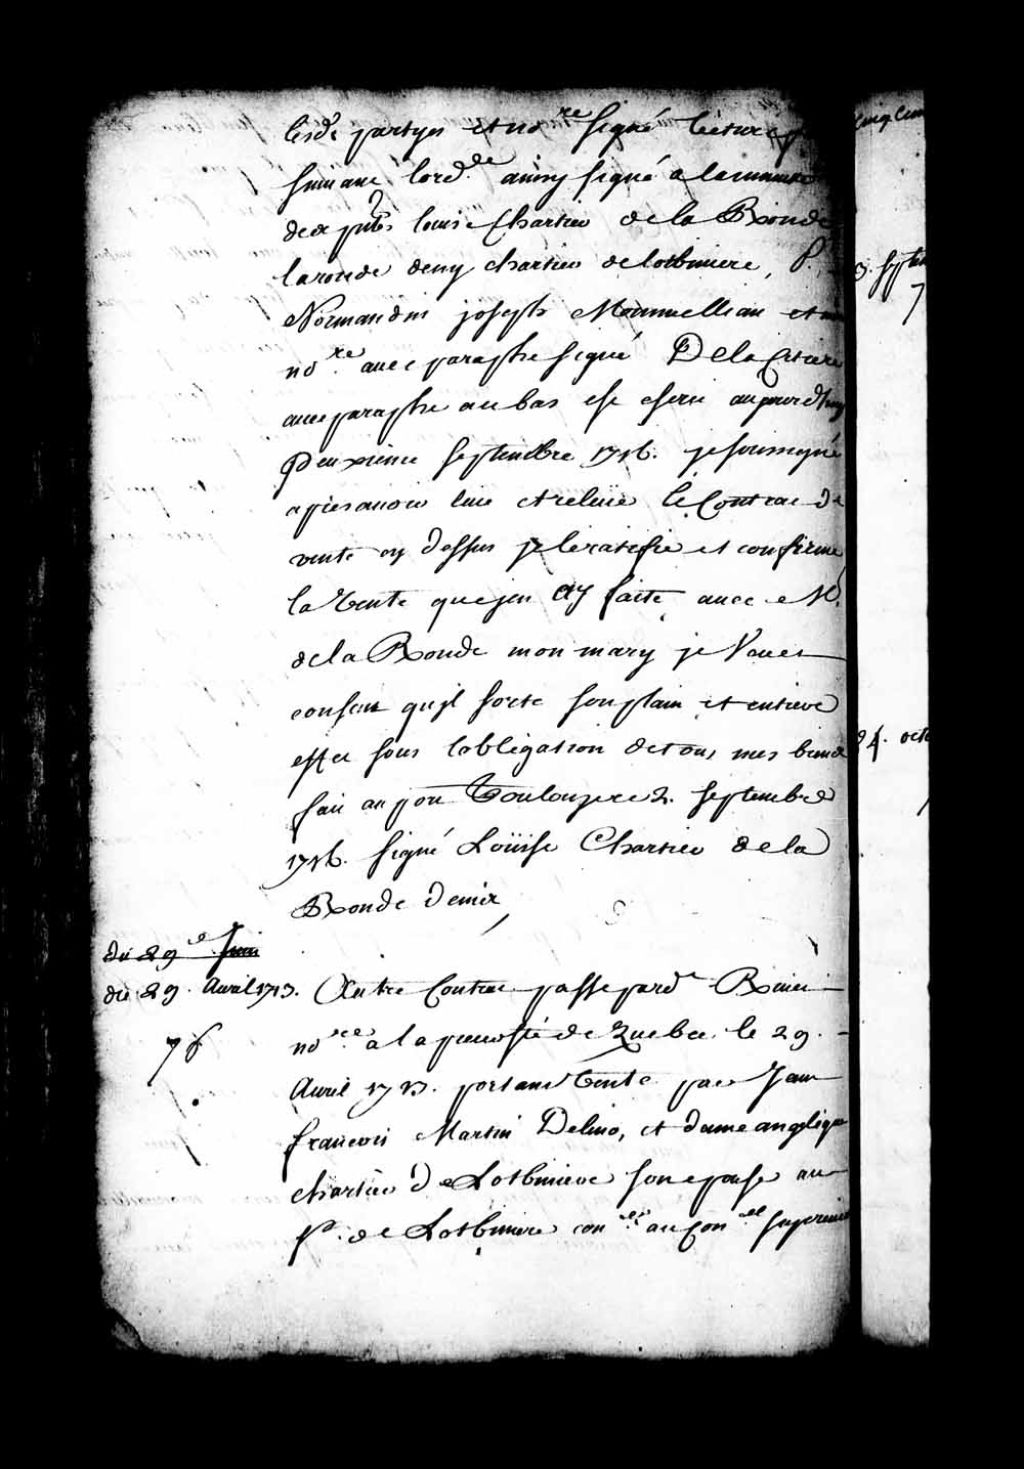 lesd. partyes et no.re signé lecture
suivant lord.ce ainsy signé a la minutte
des ptes louise Chartier de la Ronde
laronde deny chartier delotbiniere, P.
Normandin joseph Monmellian et
no.re avec paraphe signé De la Cetiere
avec paraphe au bas est escrit aujourdhuy
Deuxieme septembre 1716. je soussigné
apres avoir luue et releüe le Contrac de
vente cy dessus je le ratifie et confirme
la Vente que jen ay faite avec M.
de la Ronde mon mary je Veux et
consens quil sorte son plain et entiere
effet sous lobligation de tous mes biens
fait au port Toulouze ce 2. septembre
1716. signé Loüise Chartier de la
Ronde Denir
du 29e Juin
du 29. Avril 1713.
76
Autre Contrac passe pard. Riviei
no.re a la prevosté de Quebec le 29.
Avril 1713. portant Vente par Jean
francois Martin Delino, et dame angelique
chartier De Lotbiniere son epouse au
Sr. de Lotbiniere con.er au Con.el superieur
cinq cen
3. septem
7
24. octo